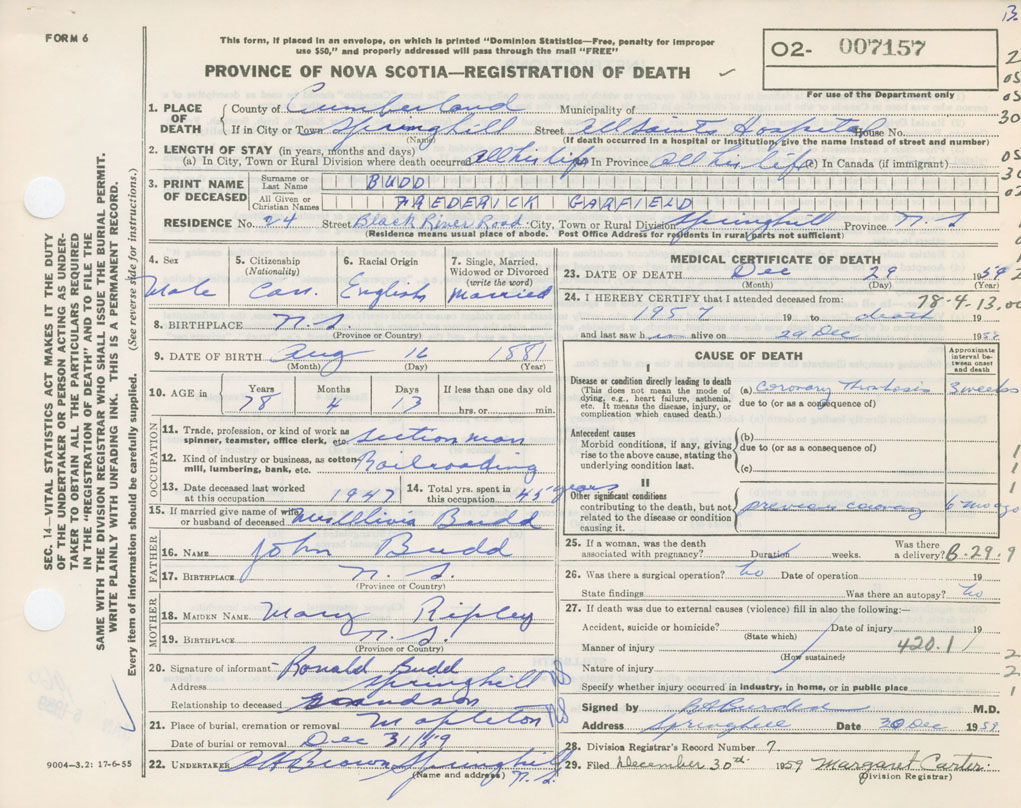 FORM 6
This form, if placed in an envelope, on which is printed "Dominion Statistics—Free, penalty for improper
use $50," and properly addressed will pass through the mail "FREE"
PROVINCE OF NOVA SCOTIA—REGISTRATION OF DEATH
O2- 007157
For use of the Department only
1. PLACE OF DEATH
County of Cumberland Municipality of
If in City or Town Springhill Street All Saints Hospital House No.
(Name) (If death occurred in a hospital or institution, give the name instead of street and number)
2. LENGTH OF STAY (in years, months and days)
(a) In City, Town or Rural Division where death occurred all his life In Province all his life (c) In Canada (if immigrant)
3. PRINT NAME OF DECEASED
Surname or Last Name BUDD
All Given or Christian Names FREDERICK GARFIELD
RESIDENCE No. 24 Street Black River Road City, Town or Rural Division Springhill Province N S
(Residence means usual place of abode. Post Office Address for residents in rural parts not sufficient)
4. Sex
Male
5. Citizenship
(Nationality)
Can.
6. Racial Origin
English
7. Single, Married,
Widowed or Divorced
(write the word)
Married
8. BIRTHPLACE N.S.
(Province or Country)
9. DATE OF BIRTH Aug 16 1881
(Month) (Day) (Year)
10. AGE in
Years Months Days If less than one day old
78 4 13 hrs. or min.
OCCUPATION
11. Trade, profession, or kind of work as
spinner, teamster, office clerk, etc. section man
12. Kind of industry or business, as cotton-
mill, lumbering, bank, etc. Railroading
13. Date deceased last worked
at this occupation 1947
14. Total yrs. spent in
this occupation 45 years
15. If married give name of wife
or husband of deceased Mrs Olivia Budd
FATHER
16. NAME John Budd
17. BIRTHPLACE N. S.
(Province or Country)
MOTHER
18. MAIDEN NAME Mary Ripley
19. BIRTHPLACE N. S.
(Province or Country)
20. Signature of informant Ronald Budd
Address Springhill NS
Relationship to deceased Grandson
21. Place of burial, cremation or removal Mapleton NS
Date of burial or removal Dec 31/59
22. UNDERTAKER Brown Springhill
(Name and address) N.S.
MEDICAL CERTIFICATE OF DEATH
23. DATE OF DEATH Dec 29 1959
(Month) (Day) (Year)
78-4.13.00
24. I HEREBY CERTIFY that I attended deceased from:
1957 19 to death 19
and last saw him alive on 29 Dec 1959
CAUSE OF DEATH
Approximate interval between onset and death
I
Disease or condition directly leading to death
(This does not mean the mode of
dying, e.g., heart failure, asthenia,
etc. It means the disease, injury, or
complication which caused death.)
(a) Coronary Thrombosis 3 weeks
due to (or as a consequence of)
Antecedent causes
Morbid conditions, if any, giving
rise to the above cause, stating the
underlying condition last.
(b)
due to (or as a consequence of)
(c)
II
Other significant conditions
contributing to the death, but not
related to the disease or condition
causing it.
previous coronary 6 mo ago
25. If a woman, was the death
associated with pregnancy? Duration weeks. Was there
a delivery? B-29.9
26. Was there a surgical operation? no Date of operation 19
State findings Was there an autopsy? no
27. If death was due to external causes (violence) fill in also the following:—
Accident, suicide or homicide? Date of injury 19
(State which)
Manner of injury 420.1
(How sustained)
Nature of injury
Specify whether injury occurred in industry, in home, or in public place
Signed by M.D.
Address Springhill Date 30 Dec 1959
28. Division Registrar's Record Number 7
29. Filed December 30th 1959 Margaret Carter
(Division Registrar)
SEC. 14—VITAL STATISTICS ACT MAKES IT THE DUTY
OF THE UNDERTAKER OR PERSON ACTING AS UNDER-
TAKER TO OBTAIN ALL THE PARTICULARS REQUIRED
IN THE "REGISTRATION OF DEATH" AND TO FILE THE
SAME WITH THE DIVISION REGISTRAR WHO SHALL ISSUE THE BURIAL PERMIT.
WRITE PLAINLY WITH UNFADING INK. THIS IS A PERMANENT RECORD.
Every item of information should be carefully supplied. (See reverse side for instructions.)
9004-3.2: 17-6-55